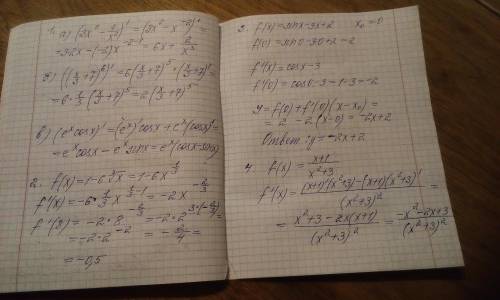 1. а) (3x² - 2/x²)' = (3x² - x⁻²)' =
= 3·2x - (-2)x⁻²⁻¹ = 6x + 2/x³
б) ((x/3 + 7)⁶)' = 6(x/3 + 7)⁵ · (x/3 + 7)' =
= 6 · 1/3 (x/3 + 7)⁵ = 2(x/3 + 7)⁵
в) (eˣcosx)' = (eˣ)'cosx + eˣ(cosx)' =
= eˣcosx - eˣsinx = eˣ(cosx - sinx)
2. f(x) = 1 - 6∛x = 1 - 6x^(1/3)
f'(x) = -6 · 1/3 x^(1/3 - 1) = -2x^(-2/3)
f'(8) = -2·8^(-2/3) = -2·2^(3·(-2/3)) =
= -2·2⁻² = -2/4 =
= -0,5
3. f(x) = sinx - 3x + 2 x₀ = 0
f(0) = sin0 - 3·0 + 2 = 2
f'(x) = cosx - 3
f'(0) = cos0 - 3 = 1 - 3 = -2
y = f(0) + f'(0)(x - x₀) =
= 2 - 2(x - 0) = -2x + 2
Ответ: y = -2x + 2
4. f(x) = (x+1)/(x²+3)
f'(x) = ((x+1)'(x²+3) - (x+1)(x²+3)')/(x²+3)² =
= (x²+3 - 2x(x+1))/(x²+3)² = (-x² - 2x + 3)/(x²+3)²